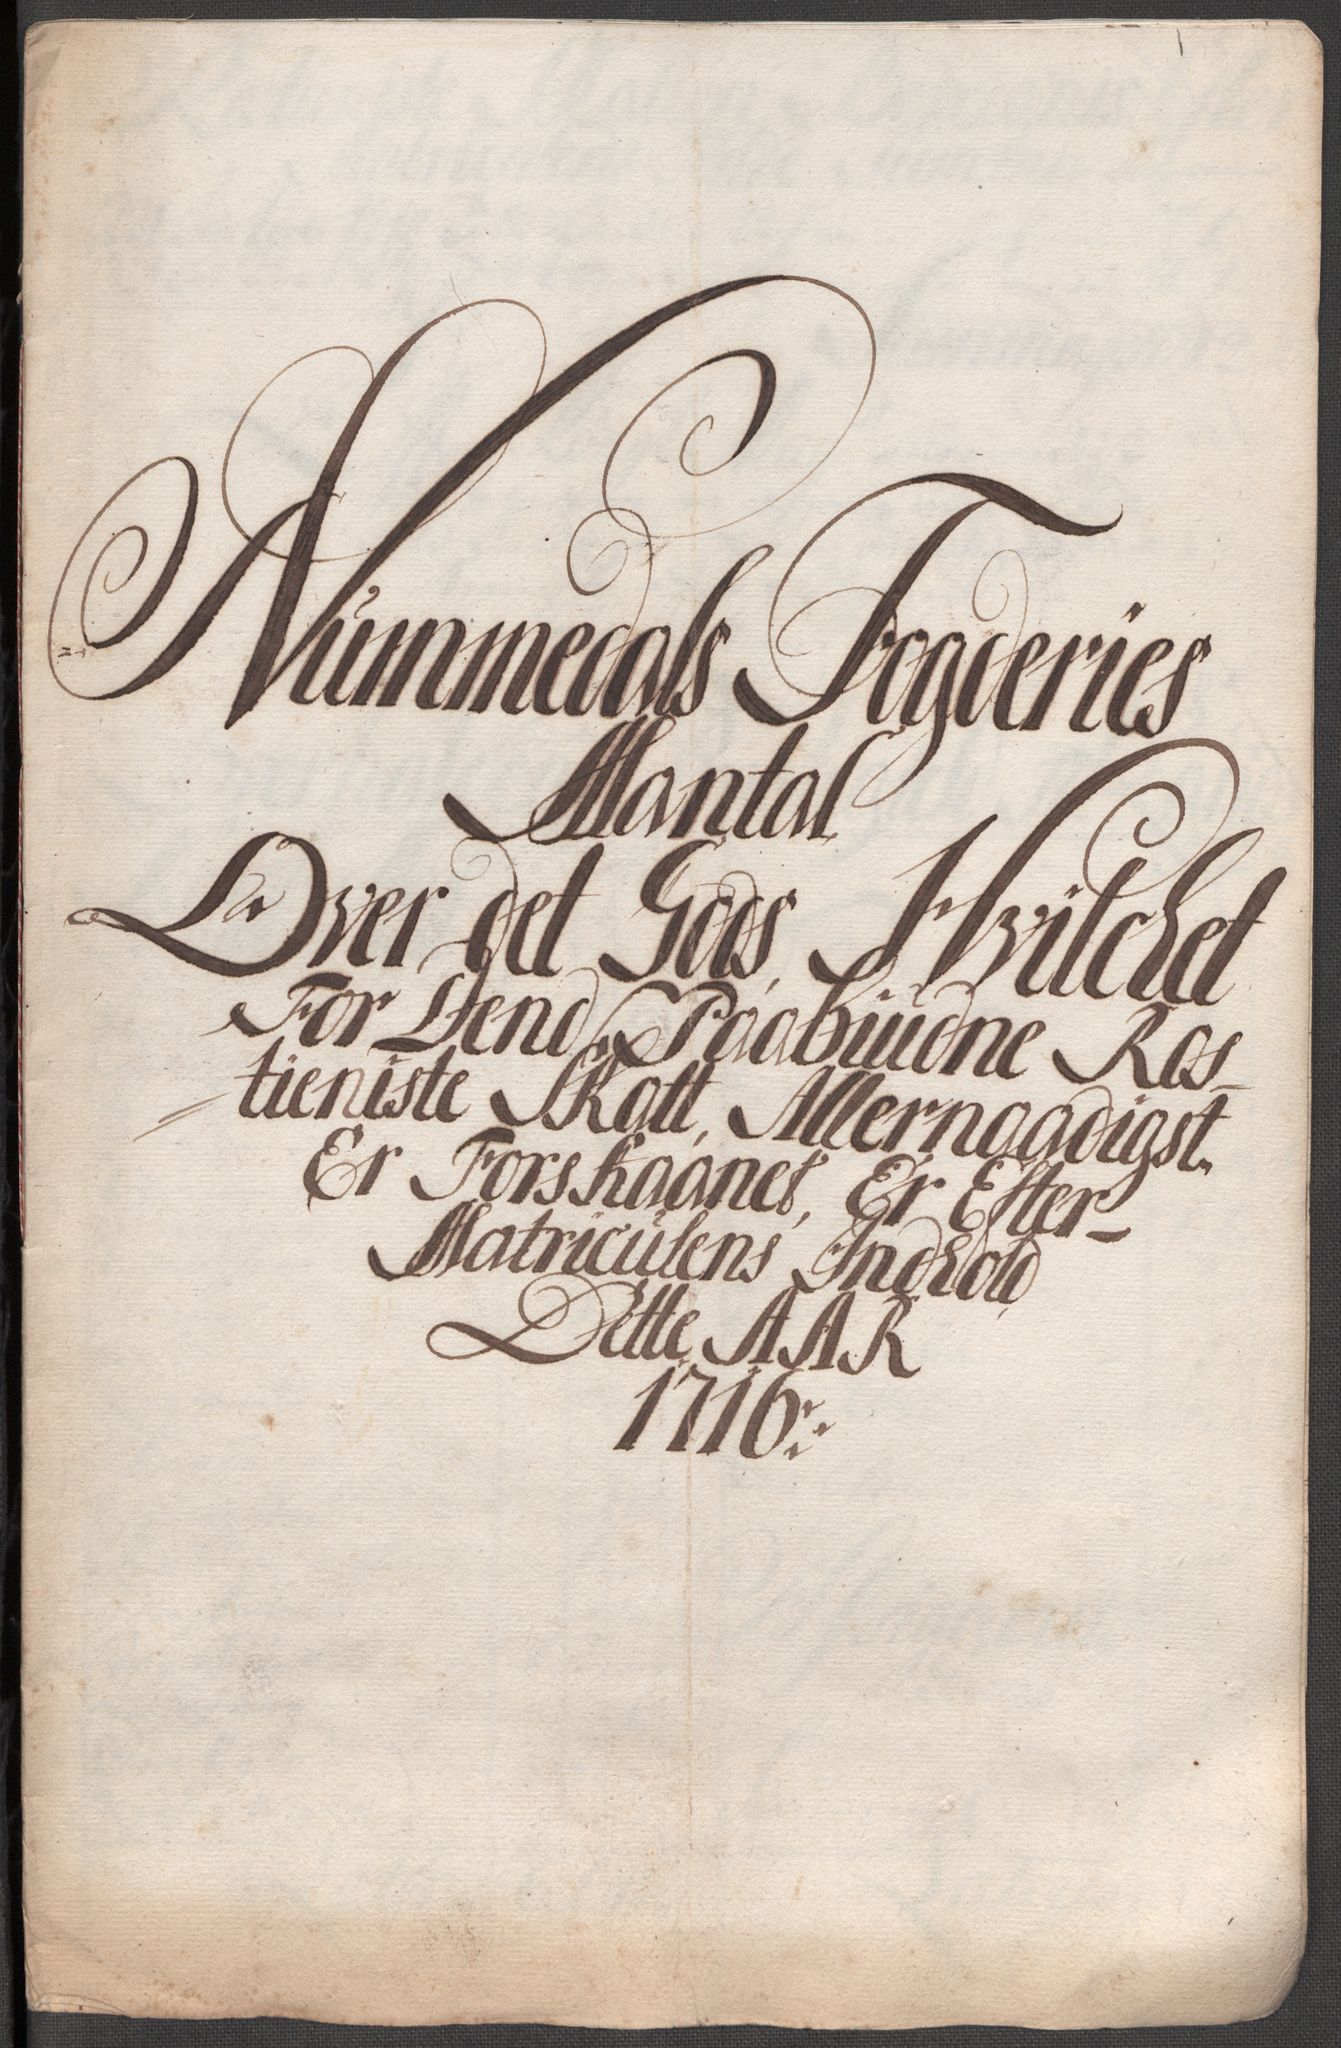 Nùmmedals Fogderies
Mantal
Over det Gods, Hvilchet
For Dend Paabùdne Ros-
tieniste Skatt, Allernaadigst
Er Forskaanet, Er Efter-
Matricùlens Indhold
Dette AAR
1716